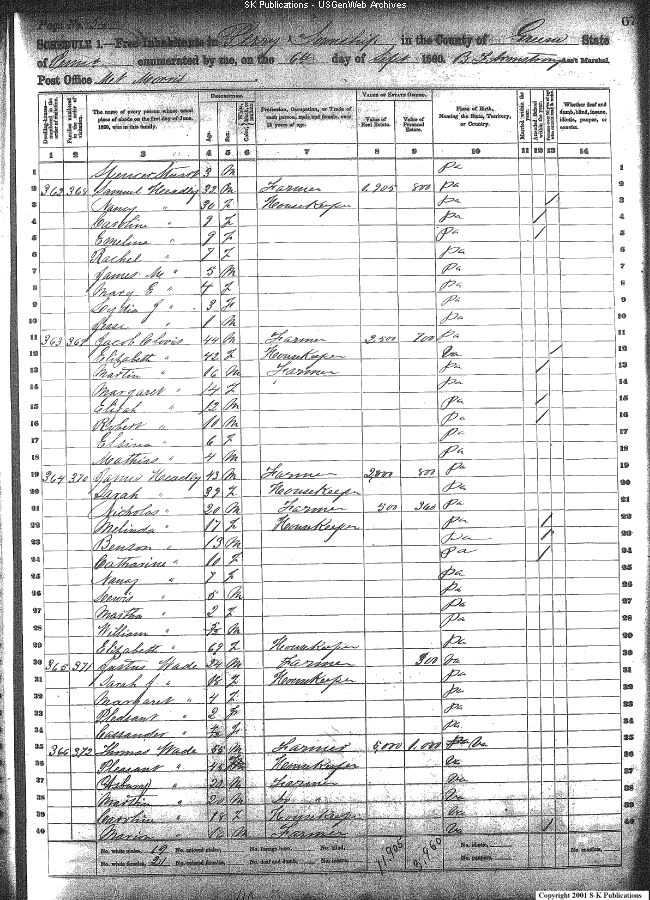 SK Publications - USGenWeb Archives
67
SCHEDULE 1.—Free Inhabitants in Perry Township in the County of Green State
of Penna enumerated by me, on the 6th day of Sept 1860. Ass't Marshal.
Post Office Mt Morris
DESCRIPTION. VALUE OF ESTATE OWNED.
The name of every person whose usual place of abode on the first day of June, 1860, was in this family. Age. Sex. Profession, Occupation, or Trade of each person, male and female, over 15 years of age. Value of Real Estate. Value of Personal Estate. Place of Birth, Naming the State, Territory, or Country. Married within the year. Attended School within the year. Whether deaf and dumb, blind, insane, idiotic, pauper, or convict.
1 2 3 4 5 6 7 8 9 10 11 12 13 14
1 Spencer Stuart 3 M Pa 1
2 362 368 Samuel Headley 32 M Farmer 1,205 800 Pa 2
3 Nancy " 30 F Housekeeper Pa / 3
4 Caroline " 9 F Pa / 4
5 Emeline " 9 F Pa / 5
6 Rachel " 7 F Pa 6
7 James M " 5 M Pa 7
8 Mary E " 4 F Pa 8
9 Lydia J " 3 F Pa 9
10 Jesse " 1 M Pa 10
11 363 369 Jacob Clovis 44 M Farmer 2,500 700 Pa 11
12 Elizabeth " 42 F Housekeeper Va / 12
13 Martin " 16 M Farmer Pa / 13
14 Margaret " 14 F Pa 14
15 Elijah " 12 M Pa / 15
16 Robert " 10 M Pa / 16
17 Elsina " 6 F Pa 17
18 Mathias " 4 M Pa 18
19 364 370 James Headley 43 M Farmer 2,800 800 Pa 19
20 Sarah " 39 F Housekeeper Pa 20
21 Nicholas " 20 M Farmer 500 360 Pa 21
22 Melinda " 17 F Housekeeper Pa / 22
23 Benson " 13 M Pa / 23
24 Catharine " 10 F Pa / 24
25 Nancy " 7 F Pa 25
26 Lewis " 5 M Pa 26
27 Martha " 2 F Pa 27
28 William " M Pa 28
29 Elizabeth " 69 F Housekeeper Pa 29
30 365 371 Justus Wade 24 M Farmer 300 Va 30
31 Sarah J " F Housekeeper Pa 31
32 Margaret " 4 F Pa 32
33 Pleasant " 2 F Pa 33
34 Cassander " Pa 34
35 366 372 Thomas Wade 55 M Farmer 5,000 1,000 Va 35
36 Pleasant " 48 Housekeeper Va 36
37 22 M Farmer Va 37
38 Martin " 20 M Do " Va 38
39 Caroline " 18 F Housekeep Va 39
40 " 16 M Farmer Va / 40
No. white males, 19 No. colored males, No. foreign born, No. blind, 11,905 3,960 No. idiotic, No. convicts,
No. white females, 21 No. colored females, No. deaf and dumb, No. insane, No. paupers,
Copyright 2001 S-K Publications